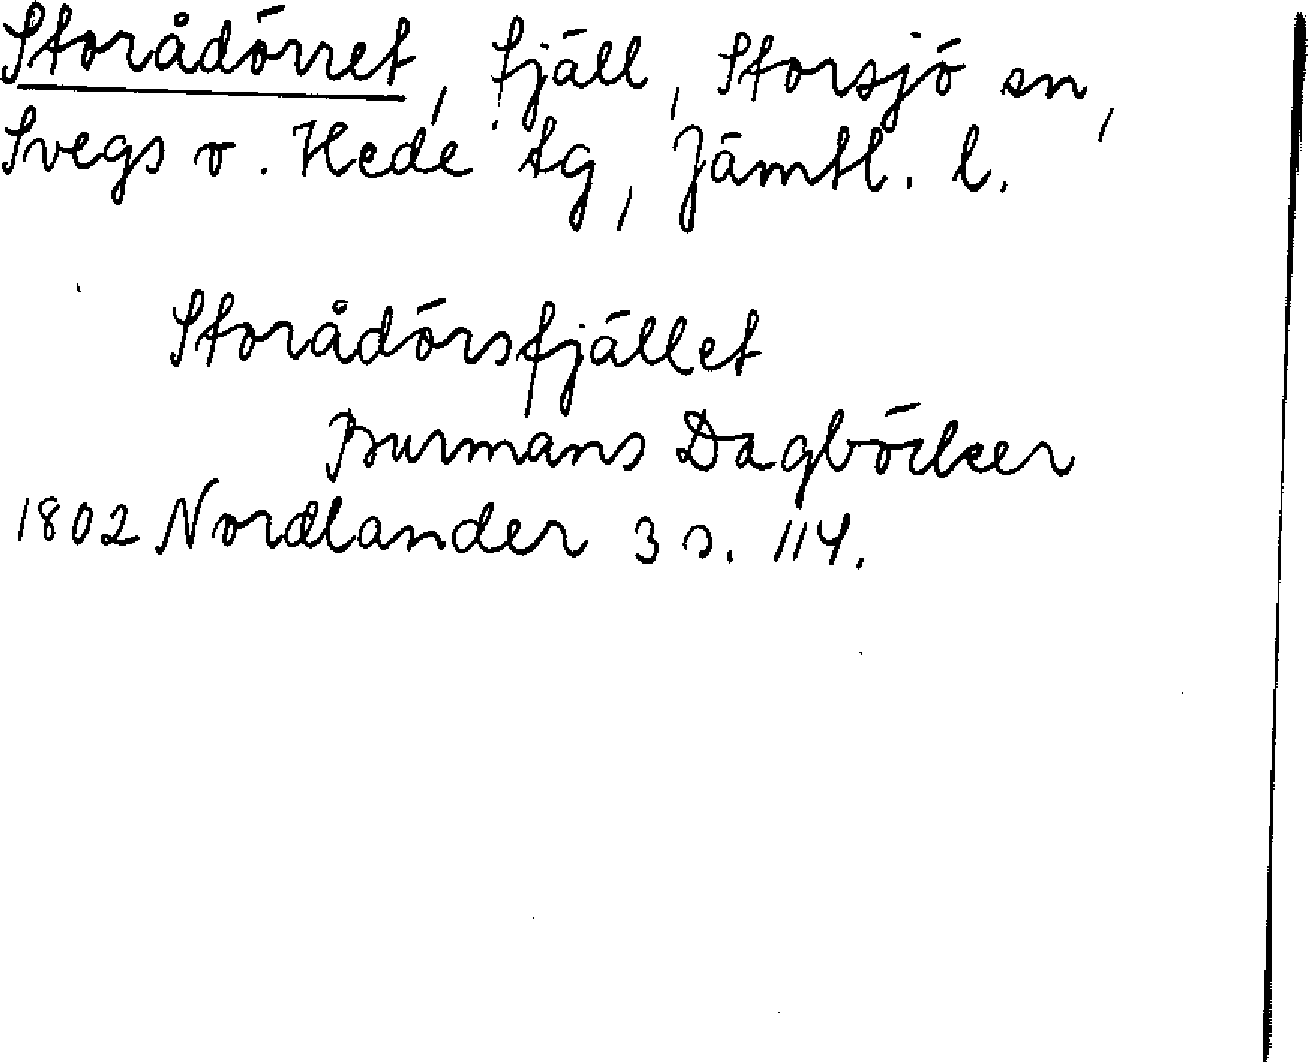 Storådörret, fjäll, Storsjö sn,
Svegs o. Hede tg, Jämtl. l.
Storådörsfjället
Burmans Dagböcker
1802 Nordlander 3 s. 114.